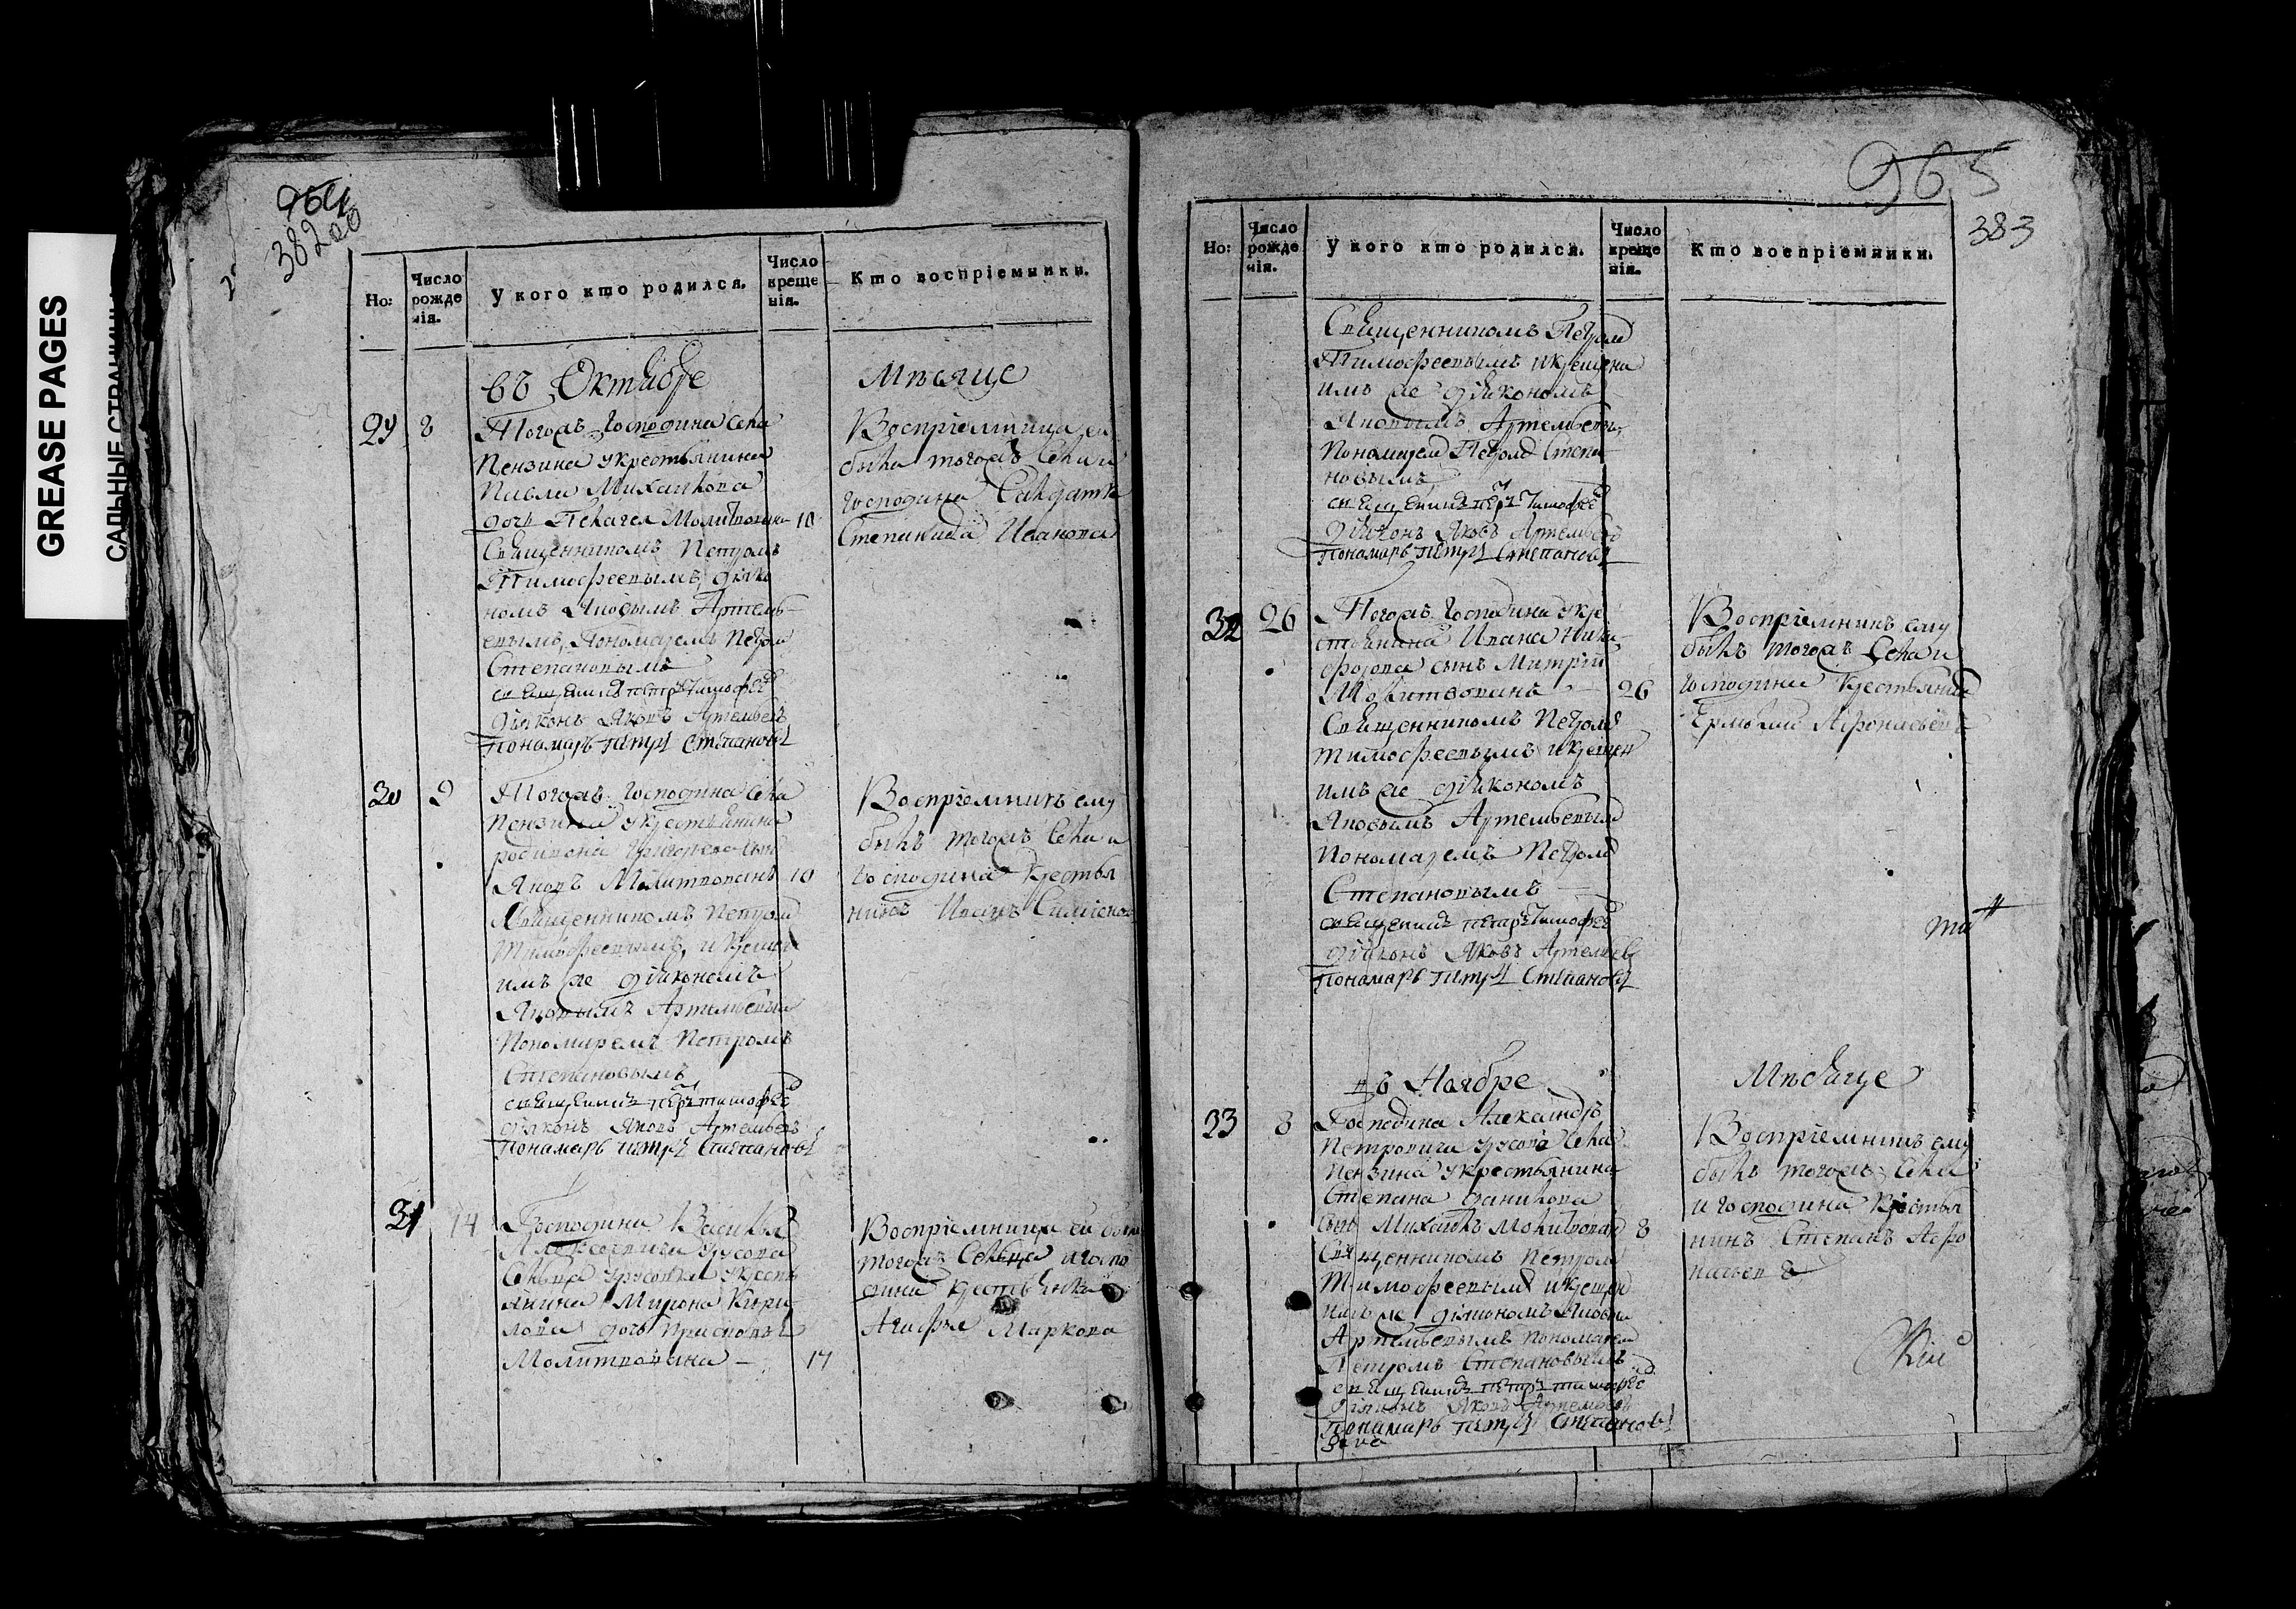 GREASE PAGES
САЛЬНЫЕ СТРАНИЦЫ
964
382 об
Но:
Число рожде нія.
У кого кто родился.
Число креще нія.
Кто воспріемники.
въ Октябре
Мѣсяце
29 8
Тогожъ Господина села
Пензина укрестьянина
Павла Михайлова
дочь Пелагея Молитвована 10
Священникомъ Петромъ
Тимофеевымъ, дiяко
номъ Яковымъ Артемь
евымъ, Пономаремъ Петром
Степановымъ
священникъ петръ Тимофеев
дiяконъ Яковъ Артемьевъ
пономарь петръ Степановъ
Воспріемница ей
была тогожъ села и
господина Салдатка
Степанида Иванова
30 9
Тогожъ Господина села
Пензина укрестьянина
родиона Григорева сын
Яковъ Молитвованъ 10
Священникомъ Петром
Тимофеевымъ, и крещен
имъ же дiякономъ
Яковымъ Артемьевым
Пономаремъ Петромъ
Степановымъ
священникъ петръ тимофеев
дiяконъ Яковъ Артемьевъ
пономарь петръ Степановъ
Воспріемникъ ему
былъ тогожъ села и
господина крестья
нинъ Иванъ Симионов
31 14
Господина Василья
Алексеевича Урусова
сельца Урусовки укресть
янина Мирона Кири
лова дочь Прасковья
Молитвована - 14
Воспріемница ей была
тогожъ Сельца и госпо
дина крестьянка
Агафья Маркова
965
383
Но:
Число рожде нія.
У кого кто родился.
Число креще нія.
Кто воспріемники.
Священникомъ Петром
Тимофеевымъ и крещена
имъ же дiякономъ
Яковымъ Артемьевы
Пономарем Петром Степа
новымъ
священникъ петръ Тимофеев
дiяконъ Яковъ Артемьевъ
пономарь петръ Степановъ
32 26
Тогожъ Господина укре
стьянина Ивана Ники
форова сынъ Митрiй
Молитвованъ - 26
Священникомъ Петромъ
тимофеевымъ и крещен
имъ же дiякономъ
Яковымъ Артемьевым
Пономаремъ Петром
Степановымъ
священникъ петръ Тимофеев
дiяконъ Яковъ Артемьевъ
пономарь петръ Степановъ
Воспріемникъ ему
былъ тогожъ села и
господина крестьянин
Ермолай Афонасьевъ
въ Ноябре
Мѣсяце
33 8
Господина Александръ
Петровича Урусова села
Пензина укрестьянина
Степана Данилова
сын Михаилъ Молитвован 8
Священникомъ Петром
Тимофеевым и крещен
имъ же дiякономъ Яковым
Артемьевымъ пономарем
Петромъ Степановымъ
священникъ петръ тимофеев
дiяконъ Яковъ Артемьевъ
пономарь петръ Степановъ
Воспріемникъ ему
былъ тогожъ села
и господина крестья
нинъ Степанъ Афо
насьевъ